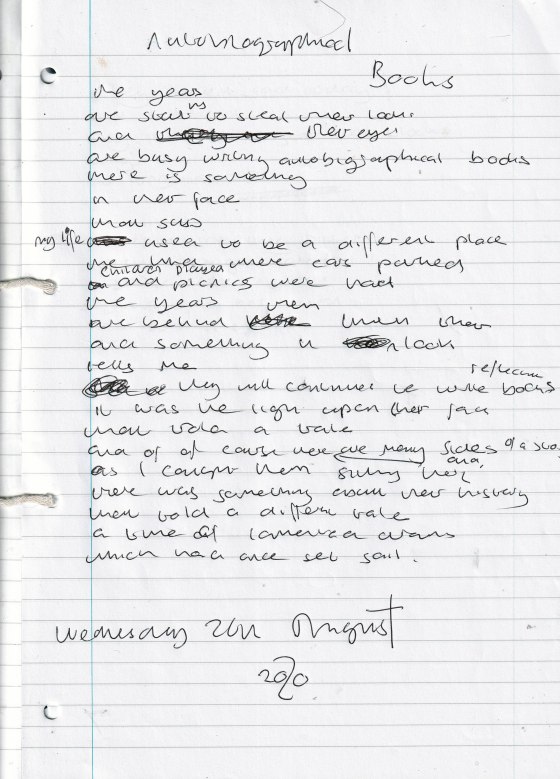 Autobiographical
Books
the years
are starting to steal their looks
and their eyes
are busy writing autobiographical books
there is something
in their face
that says
my life used to be a different place
the where cars parked
children played
and picnics were had
the years
are behind them
and something in look
tells me
they will continue to write books
it was the light upon their face
that told a tale
and of of course there are many sides of a
as I caught them sitting there
there was something about their history
that told a different tale
a time of
which had once set sail.
Wednesday 20th August
2020